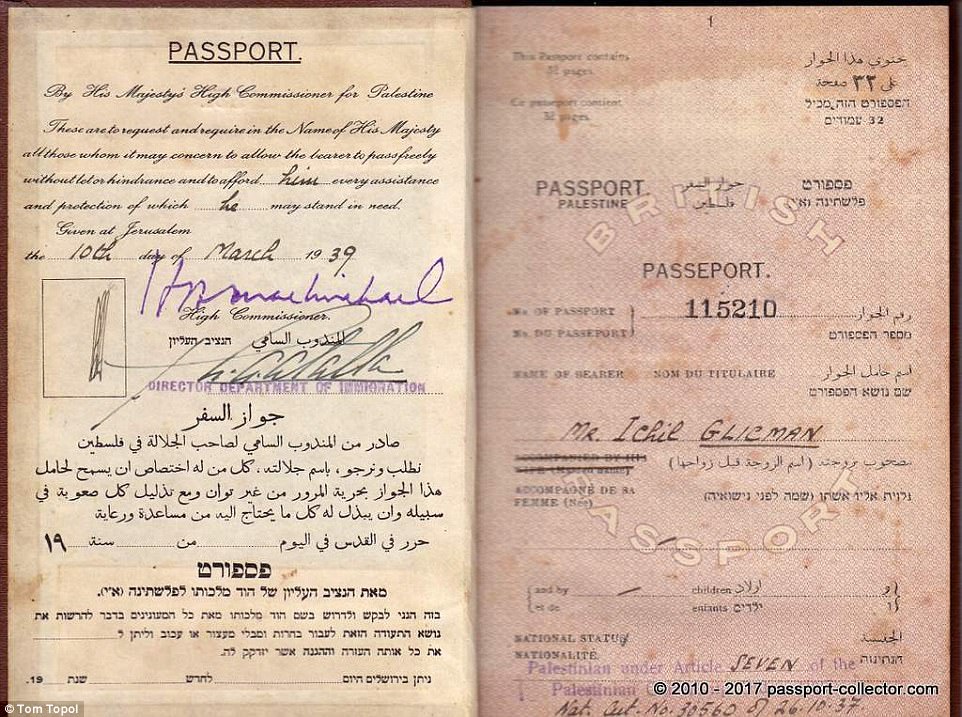 PASSPORT.
By His Majesty's High Commissioner for Palestine
These are to request and require in the Name of His Majesty
all those whom it may concern to allow the bearer to pass freely
without let or hindrance and to afford him every assistance
and protection of which he may stand in need.
Given at Jerusalem
the 10th day of March 1939
High Commissioner.
הנציב העליון المندوب السامي
DIRECTOR DEPARTMENT OF IMMIGRATION
جواز السفر
صادر من المندوب السامي لصاحب الجلالة في فلسطين
نطلب ونرجو، باسم جلالته، كل من له اختصاص ان يسمح لحامل
هذا الجواز بحرية المرور من غير توان ومع تذليل كل صعوبة في
سبيله وان يبذل له كل ما يحتاج اليه من مساعدة ورعاية
حرر في القدس في اليوم من سنة ١٩
פספורט
מאת הנציב העליון של הוד מלכותו לפלשתינה (א״י).
בזה הנני לבקש ולדרוש בשם הוד מלכותו מאת כל המעונינים בדבר להרשות את
נושא התעודה הזאת לעבור בחרות ומבלי מעצור או עכוב וליתן ל
את כל אותה העזרה וההגנה אשר יזדקק לה.
ניתן בירושלים היום לחדש שנת 19
© Tom Topol
1
This Passport contains
32 pages.
Ce passeport contient
32 pages.
يحتوي هذا الجواز
على ٣٢ صفحة
הפספורט הזה מכיל
32 עמודים
PASSPORT. جواز السفر פספורט
PALESTINE فلسطين פלשתינה (א״י)
BRITISH
PASSEPORT.
No. OF PASSPORT 115210 رقم الجواز
No. DU PASSEPORT מספר הפספורט
NAME OF BEARER NOM DU TITULAIRE اسم حامل الجواز
שם נושא הפספורט
Mr. Ichil GLICMAN
ACCOMPANIED BY HIS
WIFE (Maiden name) مصحوب بزوجته (اسم الزوجة قبل زواجها)
ACCOMPAGNÉ DE SA
FEMME (Née) נלוית אליו אשתו (שמה לפני נישואיה)
PASSPORT
and by children اولاد و
et de enfants ילדים ו
NATIONAL STATUS الجنسية
NATIONALITÉ הנתינות
Palestinian under Article SEVEN of the
Palestinian
Nat. Cert. No. 30560 of 26.10.37.
© 2010 - 2017 passport-collector.com